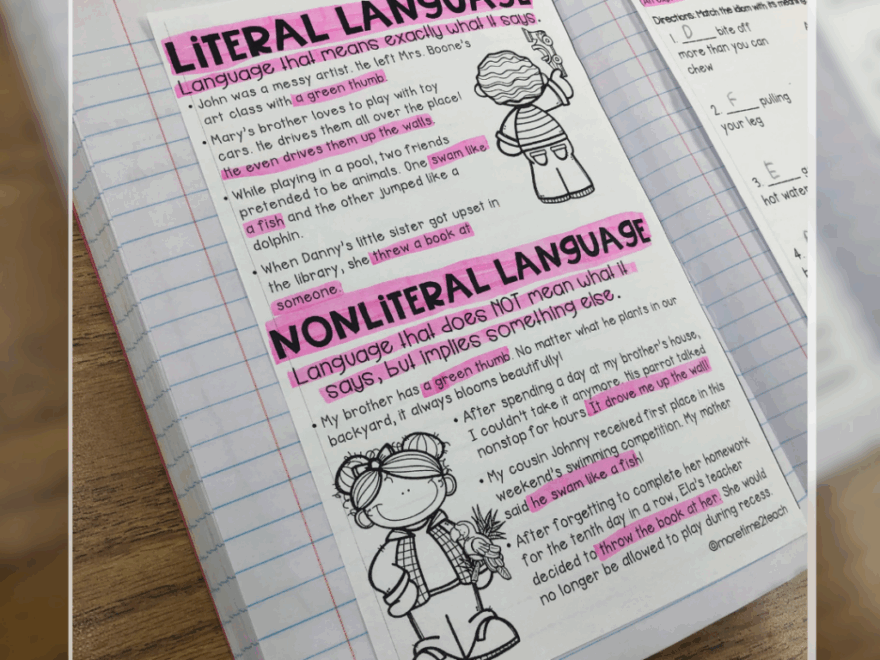 LITERAL LANGUAGE
Language that means exactly what it says.
• John was a messy artist. He left Mrs. Boone's
art class with a green thumb.
• Mary's brother loves to play with toy
cars. He drives them all over the place!
He even drives them up the walls.
• While playing in a pool, two friends
pretended to be animals. One swam like
a fish and the other jumped like a
dolphin.
• When Danny's little sister got upset in
the library, she threw a book at
someone.
NONLITERAL LANGUAGE
Language that does NOT mean what it
says, but implies something else.
• My brother has a green thumb. No matter what he plants in our
backyard, it always blooms beautifully!
• After spending a day at my brother's house,
I couldn't take it anymore. His parrot talked
nonstop for hours. It drove me up the wall!
• My cousin Johnny received first place in this
weekend's swimming competition. My mother
said he swam like a fish!
• After forgetting to complete her homework
for the tenth day in a row, Ela's teacher
decided to throw the book at her. She would
no longer be allowed to play during recess.
©moretime2teach
Directions: Match the idiom with its meaning
1. D bite off
more than you can
chew
2. F pulling
your leg
3. E
hot water
4.